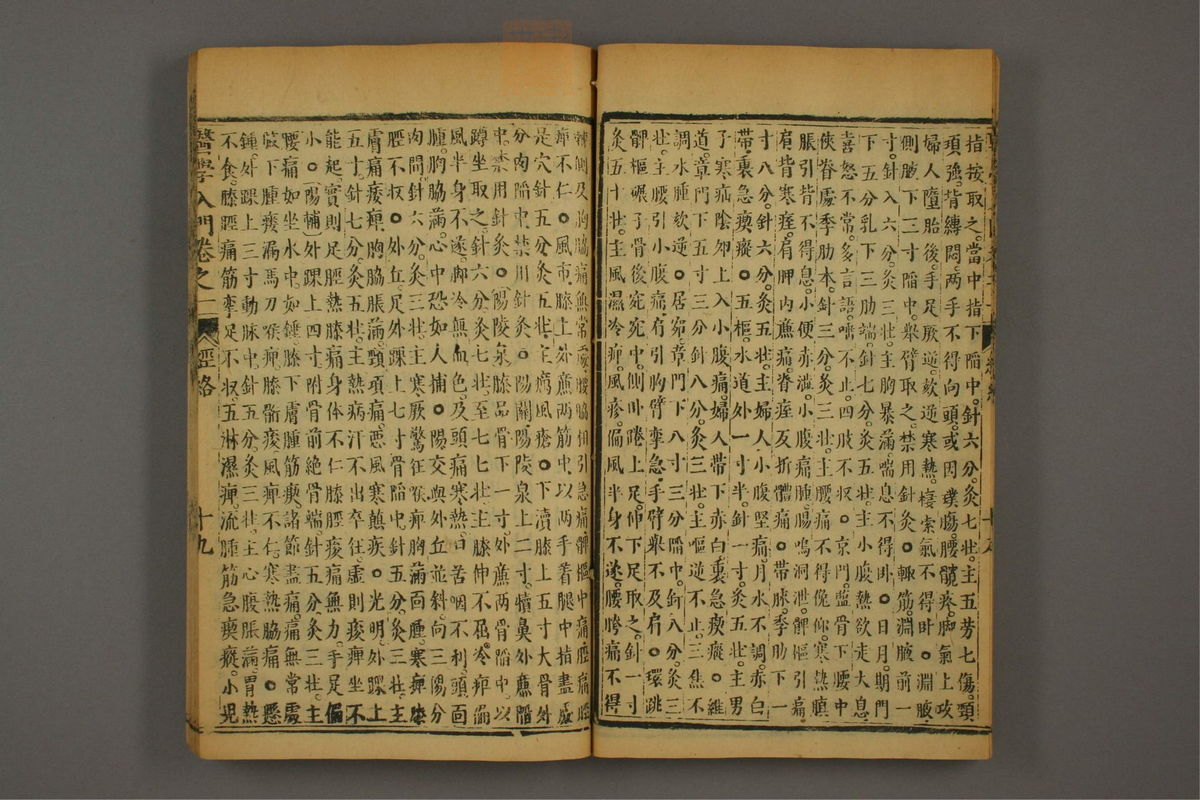 指按取之。當中指下陷中。針六分。灸七壯。主五劳七傷。頸
項強。背縛悶。两手不得向頭。或因璞傷。腰髖疼。脚氣上攻
婦人墮胎後。手足厥逆。欬逆寒熱。棲索氣不得卧。淵腋
側腋下三寸陷中。舉臂取之。禁用針灸。輙筋。淵腋前一
寸。針入六分。灸三壯。主胸暴滿。喘息不得卧。日月。期門
下五分乳下三肋端。針七分。灸五壯。主小腹熱欲走。大息
喜怒不常。多言語。唾不止。四肢不収。京門。監骨下腰中
俠脊處季肋本。針三分。灸三壯。主腰痛不得俛仰。寒熱䐜
脹引背不得息。小便赤澁。小腹痛腫。腸鳴洞泄。髀樞引痛
肩背寒痓。肩胛内廉痛。脊痓反折體痛。帶脉。季肋下一
寸八分。針六分。灸五壯。主婦人小腹堅痛。月水不調。赤白
帶。裏急瘈瘲。五樞。水道外一寸半。針一寸。灸五壯。主男
子寒疝陰卵上入小腹痛。婦人帶下赤白。裏急瘈瘲。維
道。章門下五寸三分。針八分。灸三壯。主嘔逆不止。三焦不
調。水腫欬逆。居窌。章門下八寸三分陷中。針八分。灸三
壯。主腰引小腹痛。肩引胸臂攣急。手臂舉不及肩。環跳
髀樞碾子骨後宛宛中。側卧踡上足。伸下足取之。針一寸
灸五十壯。主風濕冷痹。風疹。偏風半身不遂。腰胯痛不得
轉側。及胸脇痛無常處。腰脇相引急痛。髀樞中痛。腰痛脛
痹不仁。風市。膝上外廉两筋中。以两手着腿中指盡處
是穴。針五分。灸五壯。主癘風瘡。下瀆。膝上五寸大骨外
分肉陷中。禁用針灸。陽關。陽陵泉上二寸。犢鼻外廉陷
中。禁用針灸。陽陵泉。膝品骨下一寸。外廉两骨陷中。以
蹲坐取之。針六分。灸七壯。至七七壯。主膝伸不屈。冷痹偏
風半身不遂。脚冷無血色。及頭痛寒熱。口苦咽不利。頭面
腫。胸脇滿。心中恐如人捕。陽交。與外丘並斜。向三陽分
肉間。針六分。灸三壯。主寒厥驚狂喉痹。胸滿面腫。寒痹膝
脛不収。外丘。足外踝上七寸骨陷中。針五分。灸三壯。主
膚痛痿痹。胸脇脹滿。頸項痛。惡風寒。癲疾。光明。外踝上
五寸。針七分。灸五壯。主熱病汗不出。卒狂。虛則痿痹坐不
能起。實則足脛熱膝痛。身体不仁。膝脛痠痛無力。手足偏
小。陽輔。外踝上四寸。附骨前絶骨端。針五分。灸三壯。主
腰痛如坐水中。如錘。膝下膚腫筋瘈。諸節盡痛。痛無常處
腋下腫瘻漏馬刀喉痹。膝䯒痠。風痹不仁。寒熱脇痛。懸
鍾。外踝上三寸動脉中。針五分。灸三壯。主心腹脹滿。胃熱
不食。膝脛痛筋攣足不収。五淋濕痺。流腫筋急瘈瘲。小児
醫學入門卷之一 經絡 十九